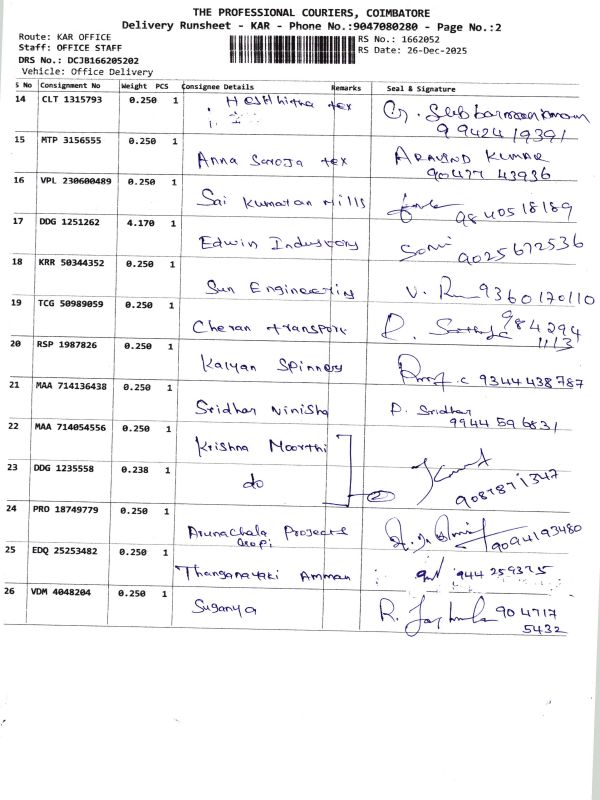 THE PROFESSIONAL COURIERS, COIMBATORE
Delivery Runsheet - KAR - Phone No.:9047080280 - Page No.:2
Route: KAR OFFICE
RS No.: 1662052
Staff: OFFICE STAFF
RS Date: 26-Dec-2025
DRS No.: DCJB166205202
Vehicle: Office Delivery
S No Consignment No Weight PCS Consignee Details Remarks Seal & Signature
14 CLT 1315793 0.250 1 tex
99424 19391
15 MTP 3156555 0.250 1 Anna Saroja tex ARAVIND KUMAR
90477 43936
16 VPL 230600489 0.250 1 Sai Kumaran Mills 9840518189
17 DDG 1251262 4.170 1 Edwin Industory 9025672536
18 KRR 50344352 0.250 1 Sun Engineering V. 9360170110
19 TCG 50989059 0.250 1 Cheran transport R. 984294
1113
20 RSP 1987826 0.250 1 Kalyan Spinners 9344438787
21 MAA 714136438 0.250 1 Sridhar Ninisha P. Sridhar
9944596831
22 MAA 714054556 0.250 1 Krishna Moorthi
23 DDG 1235558 0.238 1 do 2 9087871347
24 PRO 18749779 0.250 1 Arunachala Projects 9094193480
Gropi
25 EDQ 25253482 0.250 1 Thanganayaki Amman 944259375
26 VDM 4048204 0.250 1 Suganya R. 904717
5432